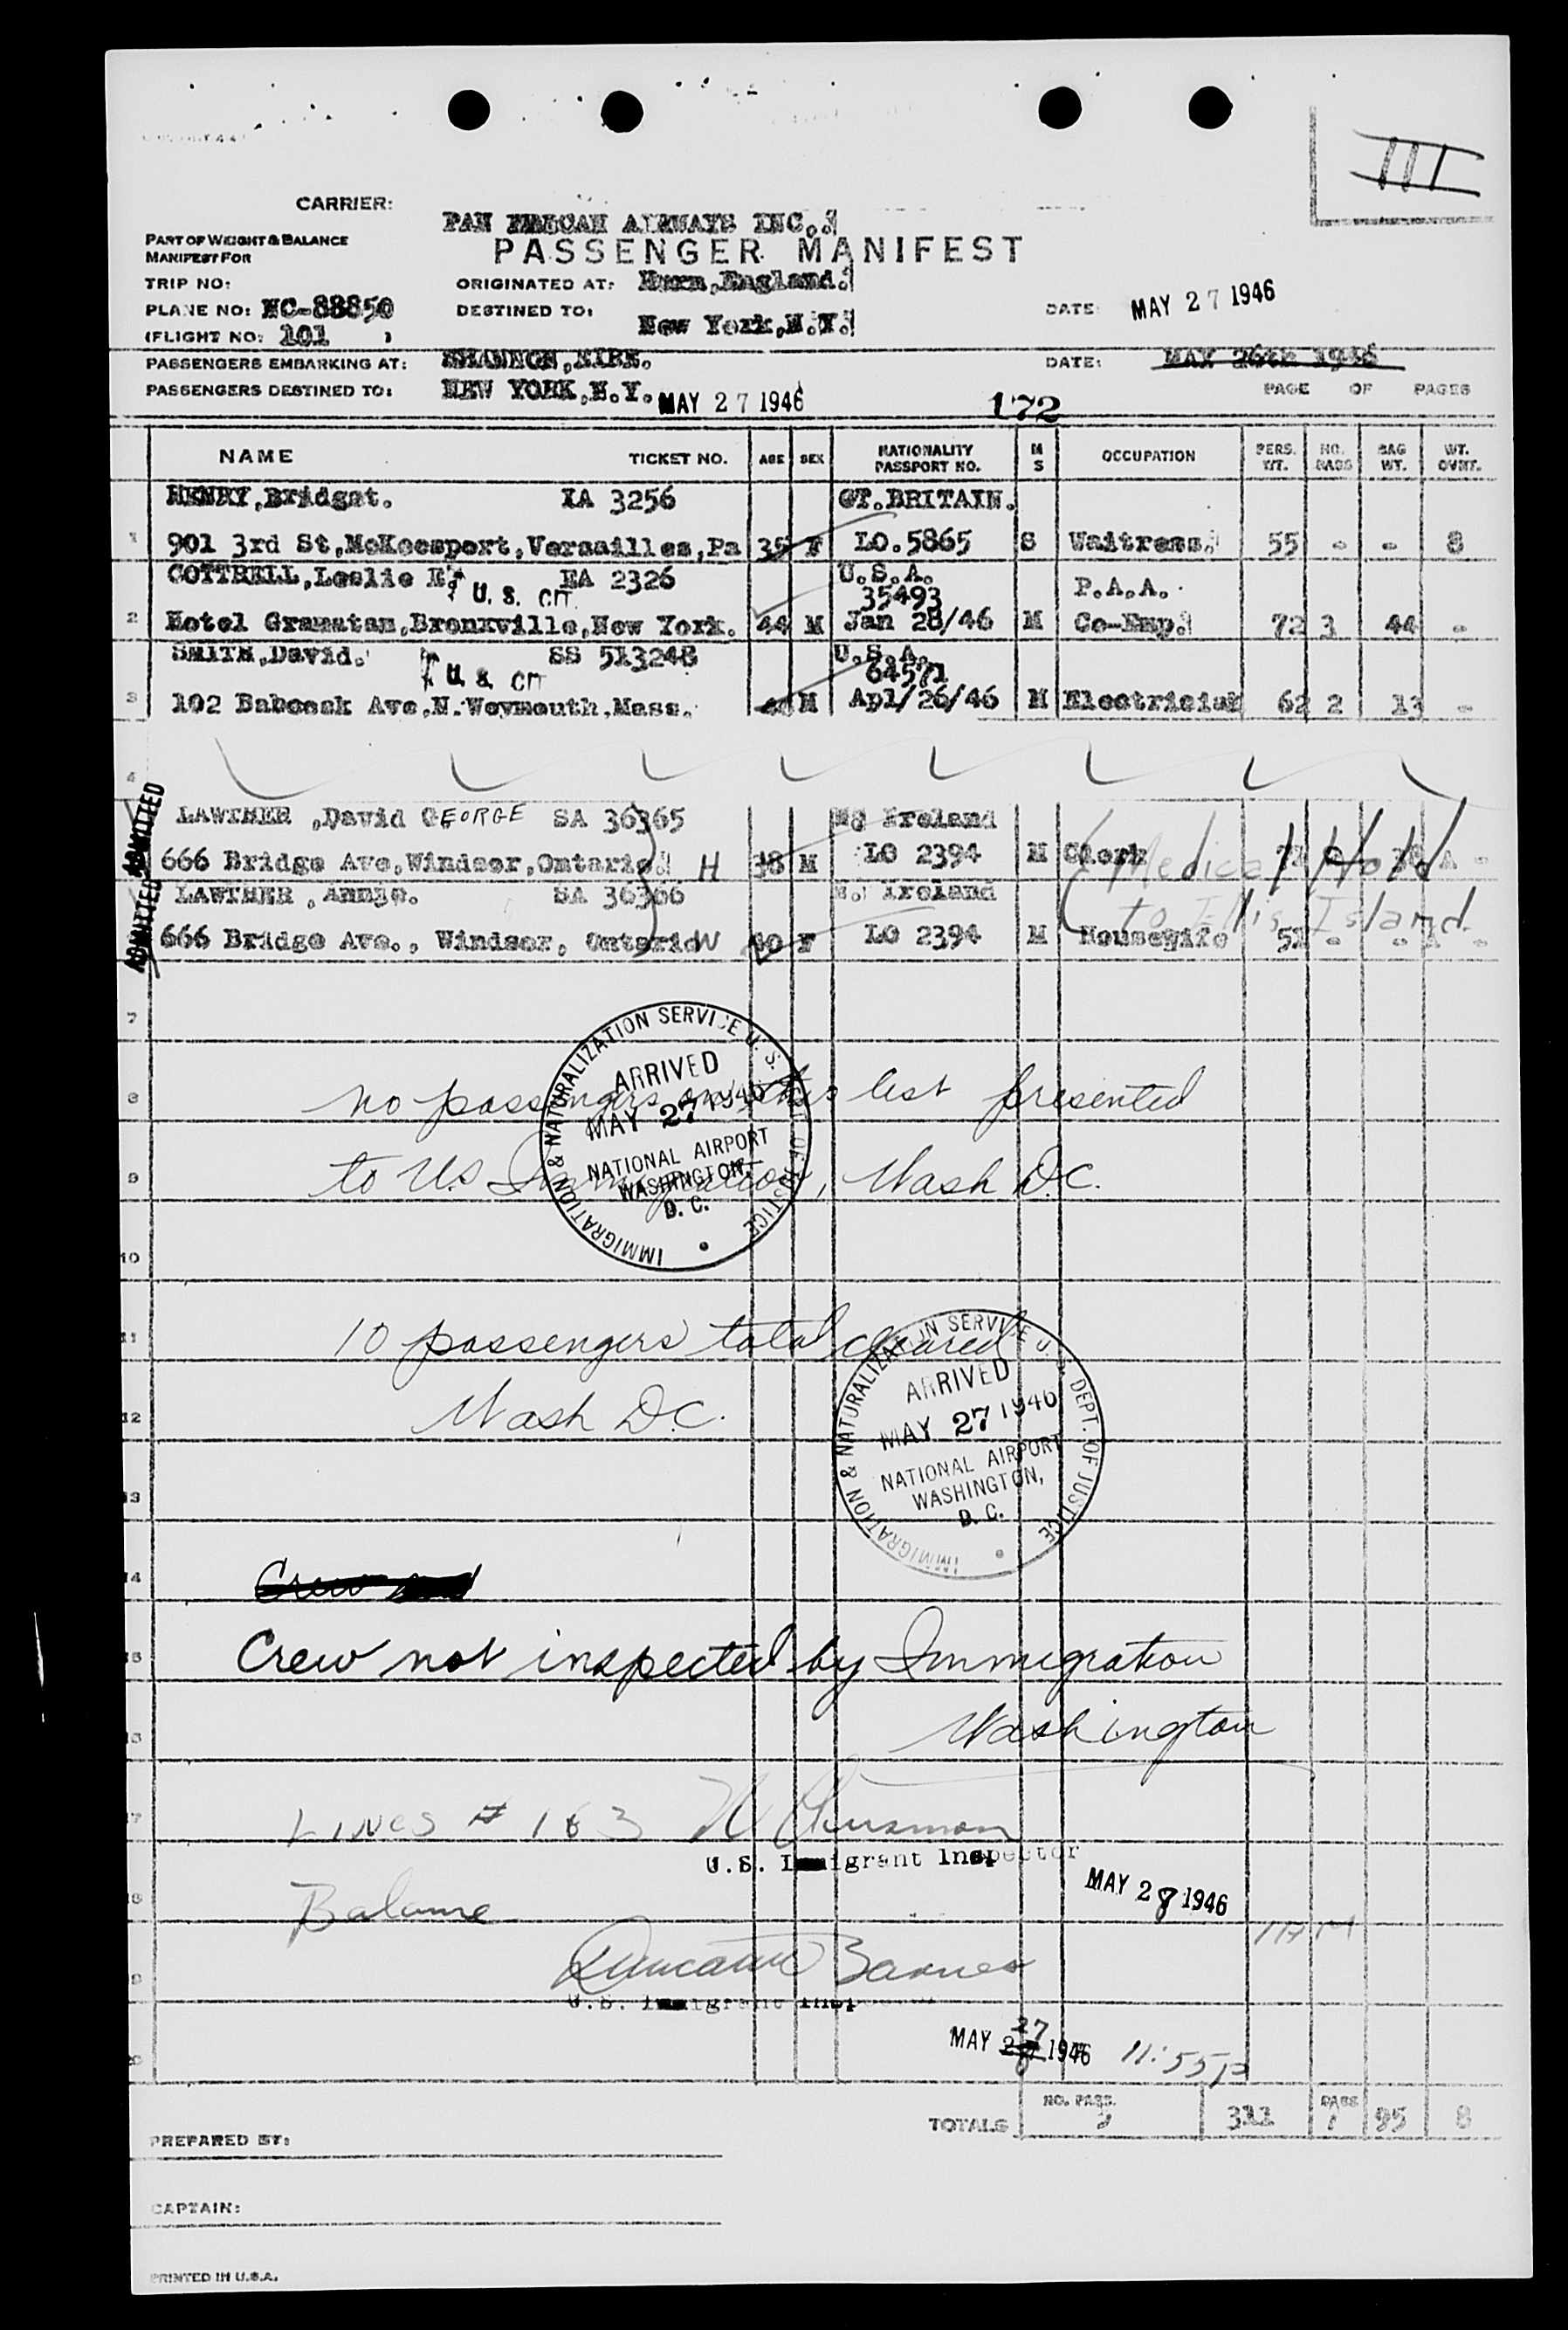 III
CARRIER:
PAN AIRWAYS INC.
PART OF WEIGHT & BALANCE
MANIFEST FOR
PASSENGER MANIFEST
TRIP NO:
ORIGINATED AT: Hurn, England.
PLANE NO: NC-88850
DESTINED TO: New York, N.Y.
DATE: MAY 27 1946
(FLIGHT NO: 101 )
PASSENGERS EMBARKING AT: SHANNON, EIRE.
DATE: MAY 26th 1946
PASSENGERS DESTINED TO: NEW YORK, N.Y. MAY 27 1946
172
PAGE OF PAGES
NAME TICKET NO. AGE SEX NATIONALITY PASSPORT NO. M S OCCUPATION PERS. WT. NO. BAGS BAG WT. WT. OVWT.
HENRY, Bridget. IA 3256 GT. BRITAIN.
1 901 3rd St, McKeesport, Versailles, Pa 35 F LO. 5865 S Waitress. 55 - - 8
COTTRELL, Leslie U. S. CIT. EA 2326 U.S.A. 35493 P.A.A.
2 Hotel Gramatan, Bronxville, New York. 44 M Jan 28/46 M Co-Emp. 72 3 44 -
SMITH, David. U. S. CIT SS 513248 U.S.A. 64571
3 102 Babcock Ave, N. Weymouth, Mass. M Apl/26/46 M Electrician 62 2 13 -
4
ADMITTED
LAWTHER, David GEORGE SA 36365 No Ireland
666 Bridge Ave, Windsor, Ontario. H 38 M LO 2394 M Clerk
Medical Hold
ADMITTED
LAWTHER, SA 36366 N. Ireland
to Ellis Island
666 Bridge Ave., Windsor, Ontario W 40 F LO 2394 M Housewife 51 - -
7
IMMIGRATION & NATURALIZATION SERVICE U. S. DEPT. OF JUSTICE
ARRIVED
MAY 27 1946
NATIONAL AIRPORT
WASHINGTON,
D. C.
8 no passengers on this list presented
9 to U.S. Immigration, Wash D.C.
10
11 10 passengers total cleared
12 Wash D.C.
IMMIGRATION & NATURALIZATION SERVICE U. S. DEPT. OF JUSTICE
ARRIVED
MAY 27 1946
NATIONAL AIRPORT
WASHINGTON,
D. C.
13
14 Crew
15 Crew not inspected by Immigration
16 Washington
17 LINES # 163
U.S. Immigrant Inspector
MAY 28 1946
18 Balance
1 AM
19 Duncan Barnes
U.S. Immigrant Inspector
MAY 27 1946 11:55P
20
TOTALS NO. PASS. 311 BAGS 95 8
PREPARED BY:
CAPTAIN:
PRINTED IN U.S.A.